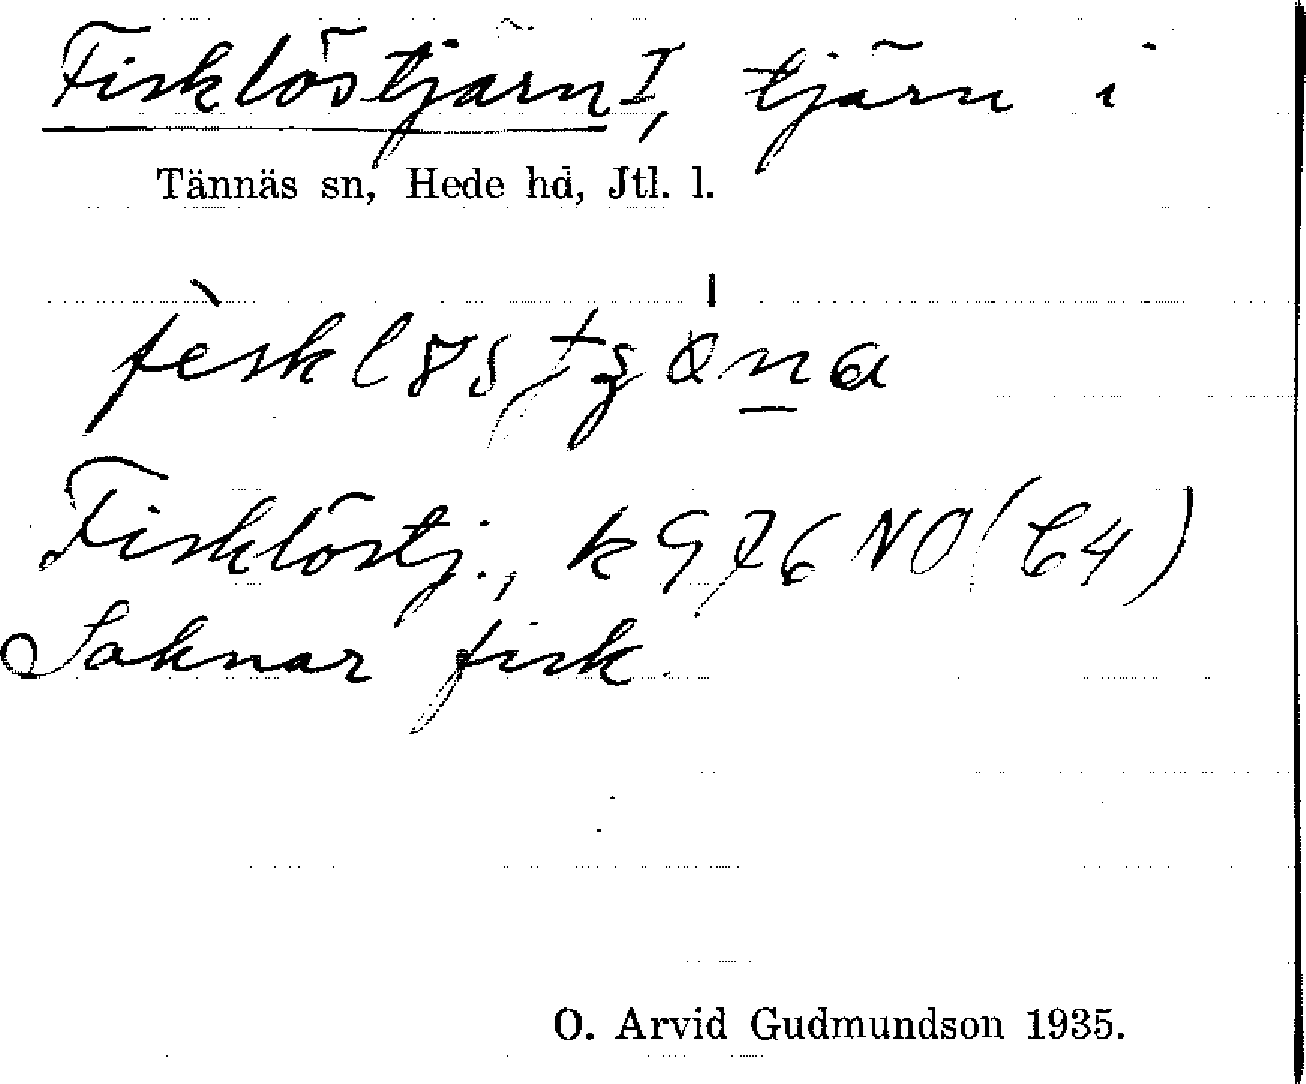 Fisklöstjärn I, tjärn i
Tännäs sn, Hede hd, Jtl. l.
Fisklöstj., k 976 NO (C4)
Saknar fisk.
O. Arvid Gudmundson 1935.